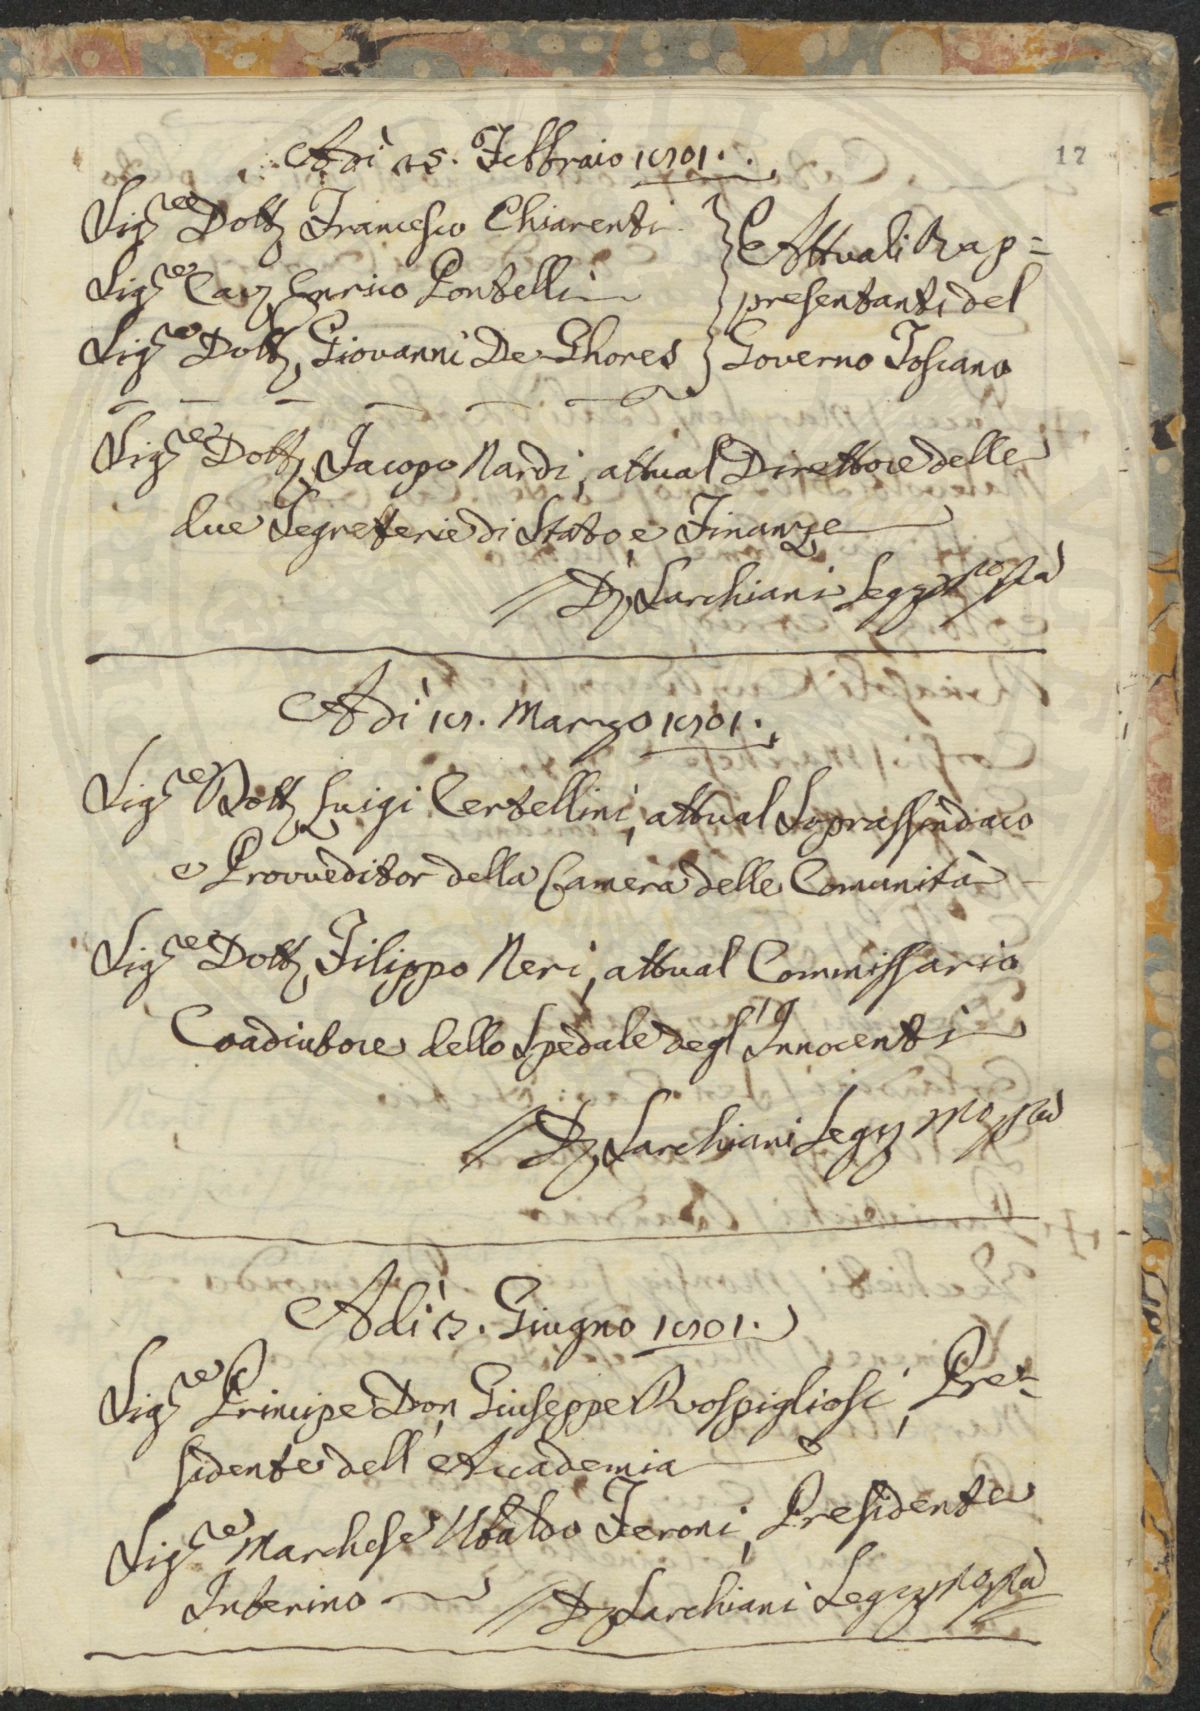 17
Adì 25. Febbraio 1801.
Sig.re Dott. Francesco Chiarenti
Sig.re Cav. Enrico Pontelli
Sig.re Dott. Giovanni De Ghores
Attuali Rap=
presentanti del
Governo Toscano
Sig.re Dott. Jacopo Nardi, attual Direttore delle
due Segreterie di Stato, e Finanze
Larchiani Seg.
Adì Marzo 1801.
Sig.re Dott. Luigi Certellini, attual Soprassindaco
e Provveditor della Camera delle Comunità
Sig.re Dott. Filippo Neri, attual Commissario
Coadiutore dello Spedale degl'Innocenti
Larchiani Seg.
Adì Giugno 1801.
Sig.re Principe Don Giuseppe Rospigliosi, Pre=
sidente dell'Accademia
Sig.re Marchese Ubaldo Feroni, Presidente
Interino
Larchiani Seg.